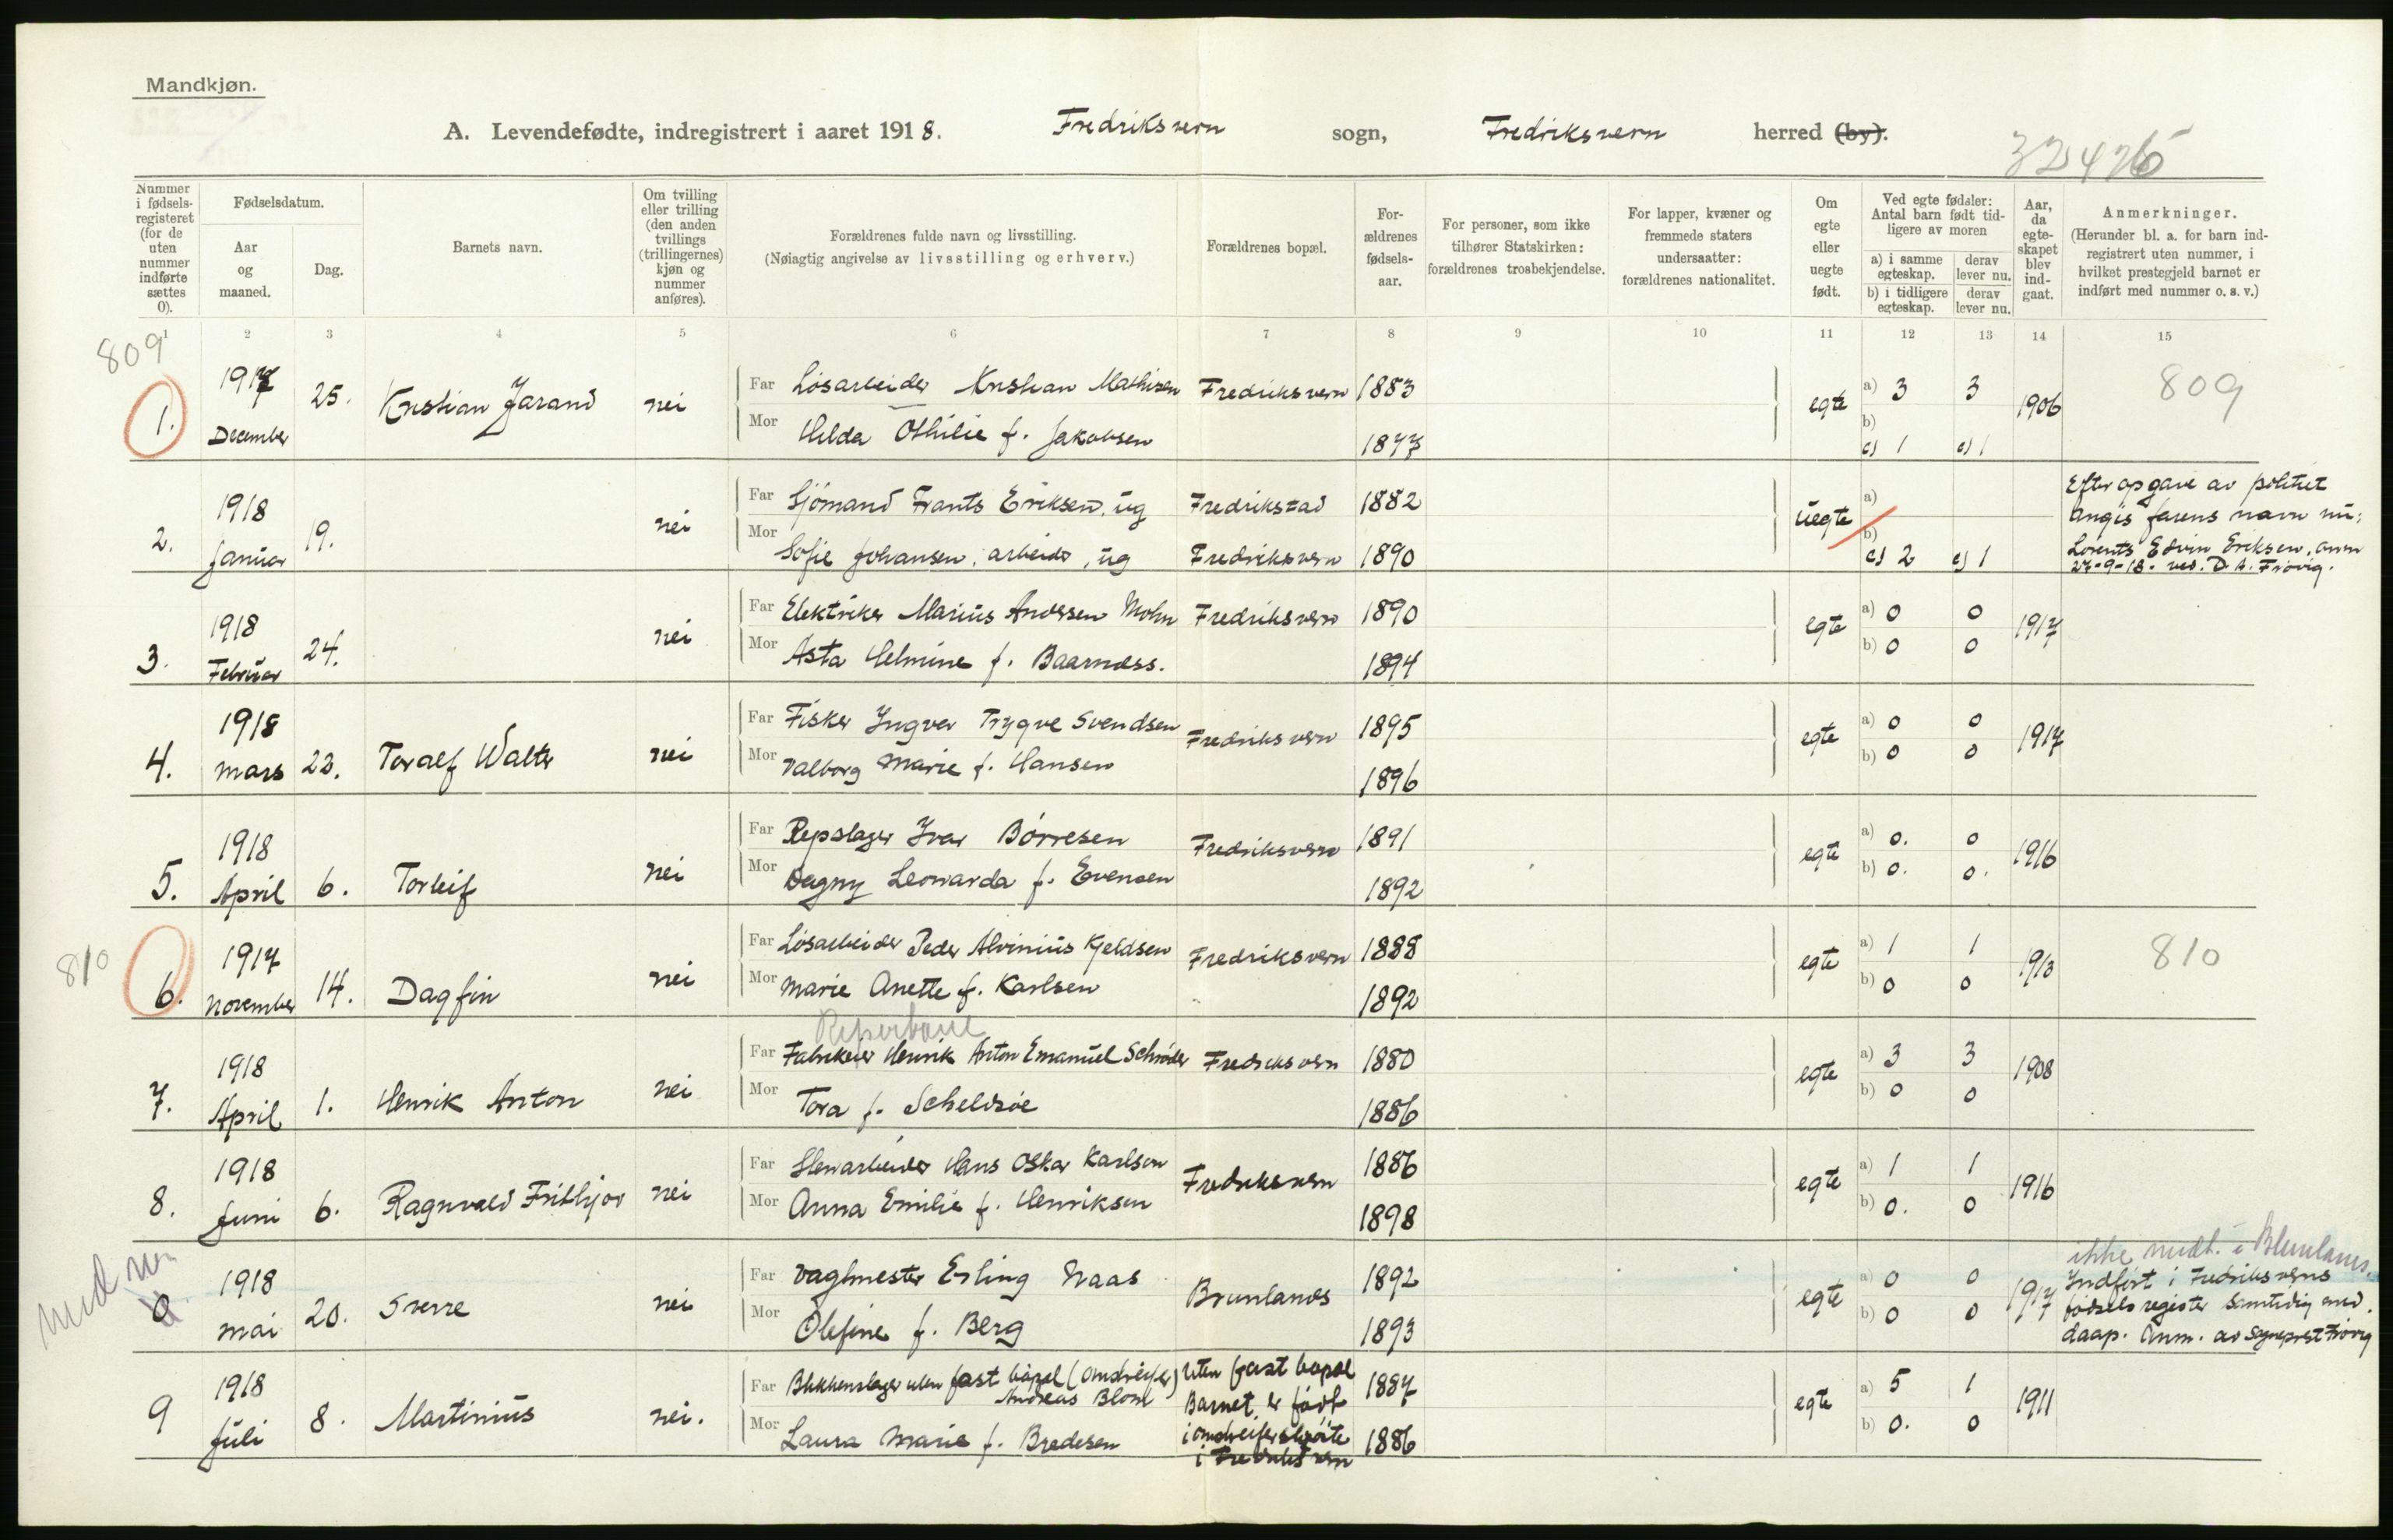 Mandkjøn.
A. Levendefødte, indregistrert i aaret 1918. Fredriksvern sogn, Fredriksvern herred (by).
Nummer i fødselsregisteret (for de uten nummer indførte sættes 0).
Fødselsdatum.
Aar og maaned.
Dag.
Barnets navn.
Om tvilling eller trilling (den anden tvillings (trillingernes) kjøn og nummer anføres).
Forældrenes fulde navn og livsstilling.
(Nøiagtig angivelse av livsstilling og erhverv.)
Forældrenes bopæl.
Forældrenes fødselsaar.
For personer, som ikke tilhører Statskirken: forældrenes trosbekjendelse.
For lapper, kvæner og fremmede staters undersaatter: forældrenes nationalitet.
Om egte eller uegte født.
Ved egte fødsler: Antal barn født tidligere av moren
a) i samme egteskap. derav lever nu.
b) i tidligere egteskap. derav lever nu.
Aar, da egteskapet blev indgaat.
Anmerkninger.
(Herunder bl. a. for barn indregistrert uten nummer, i hvilket prestegjeld barnet er indført med nummer o. s. v.)
1 2 3 4 5 6 7 8 9 10 11 12 13 14 15
809
1. 1917 December 25. Kristian Jarand nei
Far Løsarbeider Kristian Mathisen Fredriksvern 1883 egte a) 3 3 1906 809
Mor Hilda Othilie f. Jakobsen 1877 b)
c) 1 c) 1
2. 1918 Januar 19. nei
Far Sjømand Frants Eriksen, ug Fredrikstad 1882 uegte a)
Mor Sofie Johansen, arbeider, ug Fredriksvern 1890 b)
c) 2 c) 1
Efter opgave av politiet
angis farens navn nu:
Lorents Edvin Eriksen, anm
27-9-18. ved. D. A. Frøvig.
3. 1918 Februar 24. nei
Far Elektriker Marius Andersen Mohn Fredriksvern 1890 egte a) 0 0 1917
Mor Asta Helmine f. Baarnæss. 1894 b) 0 0
4. 1918 Mars 22. Toralf Walter nei
Far Fisker Yngvar Trygve Svendsen Fredriksvern 1895 egte a) 0 0 1917
Mor Valborg Marie f. Hansen 1896 b) 0 0
5. 1918 April 6. Torleif nei
Far Repslager Ivar Børresen Fredriksvern 1891 egte a) 0. 0 1916
Mor Dagny Leonarda f. Evensen 1892 b) 0. 0.
810
6. 1917 November 14. Dagfin nei
Far Løsarbeider Peder Alvinius Kjeldsen Fredriksvern 1888 egte a) 1 1 1913 810
Mor Marie Anette f. Karlsen 1892 b) 0 0
Reperbane
7. 1918 April 1. Henrik Anton nei
Far Fabrikeier Henrik Anton Emanuel Schrøder Fredriksvern 1880 egte a) 3 3 1908
Mor Tora f. 1886 b) 0 0
8. 1918 Juni 6. Ragnvald Frithjov nei
Far Stenarbeider Hans Oskar Karlsen Fredriksvern 1886 egte a) 1 1 1916
Mor Anna Emilie f. Henriksen 1898 b) 0. 0
0 1918 Mai 20. Sverre nei
Far Vagtmester Erling Naas Brunlanes 1892 egte a) 0 0 1917
Mor Olefine f. Berg 1893 b) 0 0
ikke medt. i Brunlanes.
Indført i Fredriksverns
fødselsregister samtidig med
daap. Anm. av Sogneprest Frøvig
9 1918 Juli 8. Martinius nei.
Far Blikkenslager uten fast bopæl (omdreifer) Andreas Blom 1887 egte a) 5 1 1911
Mor Laura Marie f. Bredesen 1886 b) 0. 0
Uten fast bopæl
Barnet er født
i omdreiferskøite
i Fredriksvern